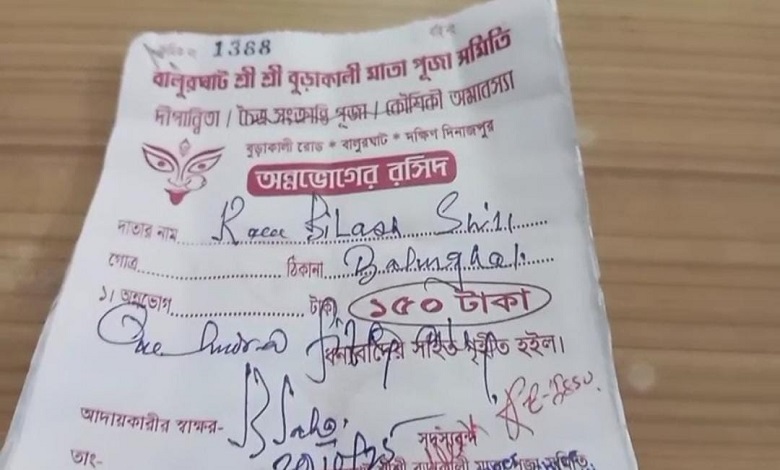 1388
বালুরঘাট শ্রী শ্রী বুড়াকালী মাতা পূজা সমিতি
দীপান্বিতা / চৈত্র সংক্রান্তি পূজা / কৌশিকী অমাবস্যা
বুড়াকালী রোড * বালুরঘাট * দক্ষিণ দিনাজপুর
অন্নভোগের রসিদ
দাতার নাম
গোত্র ঠিকানা Balurghat
১। অন্নভোগ টাকা ১৫০ টাকা
One hundred
ধন্যবাদের সহিত গৃহীত হইল।
আদায়কারীর স্বাক্ষর- B Saha
তাং-